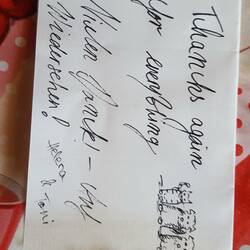 Thanks again
for everything
Vielen Dank! – und
Wiedersehen!
Helena
& Toni